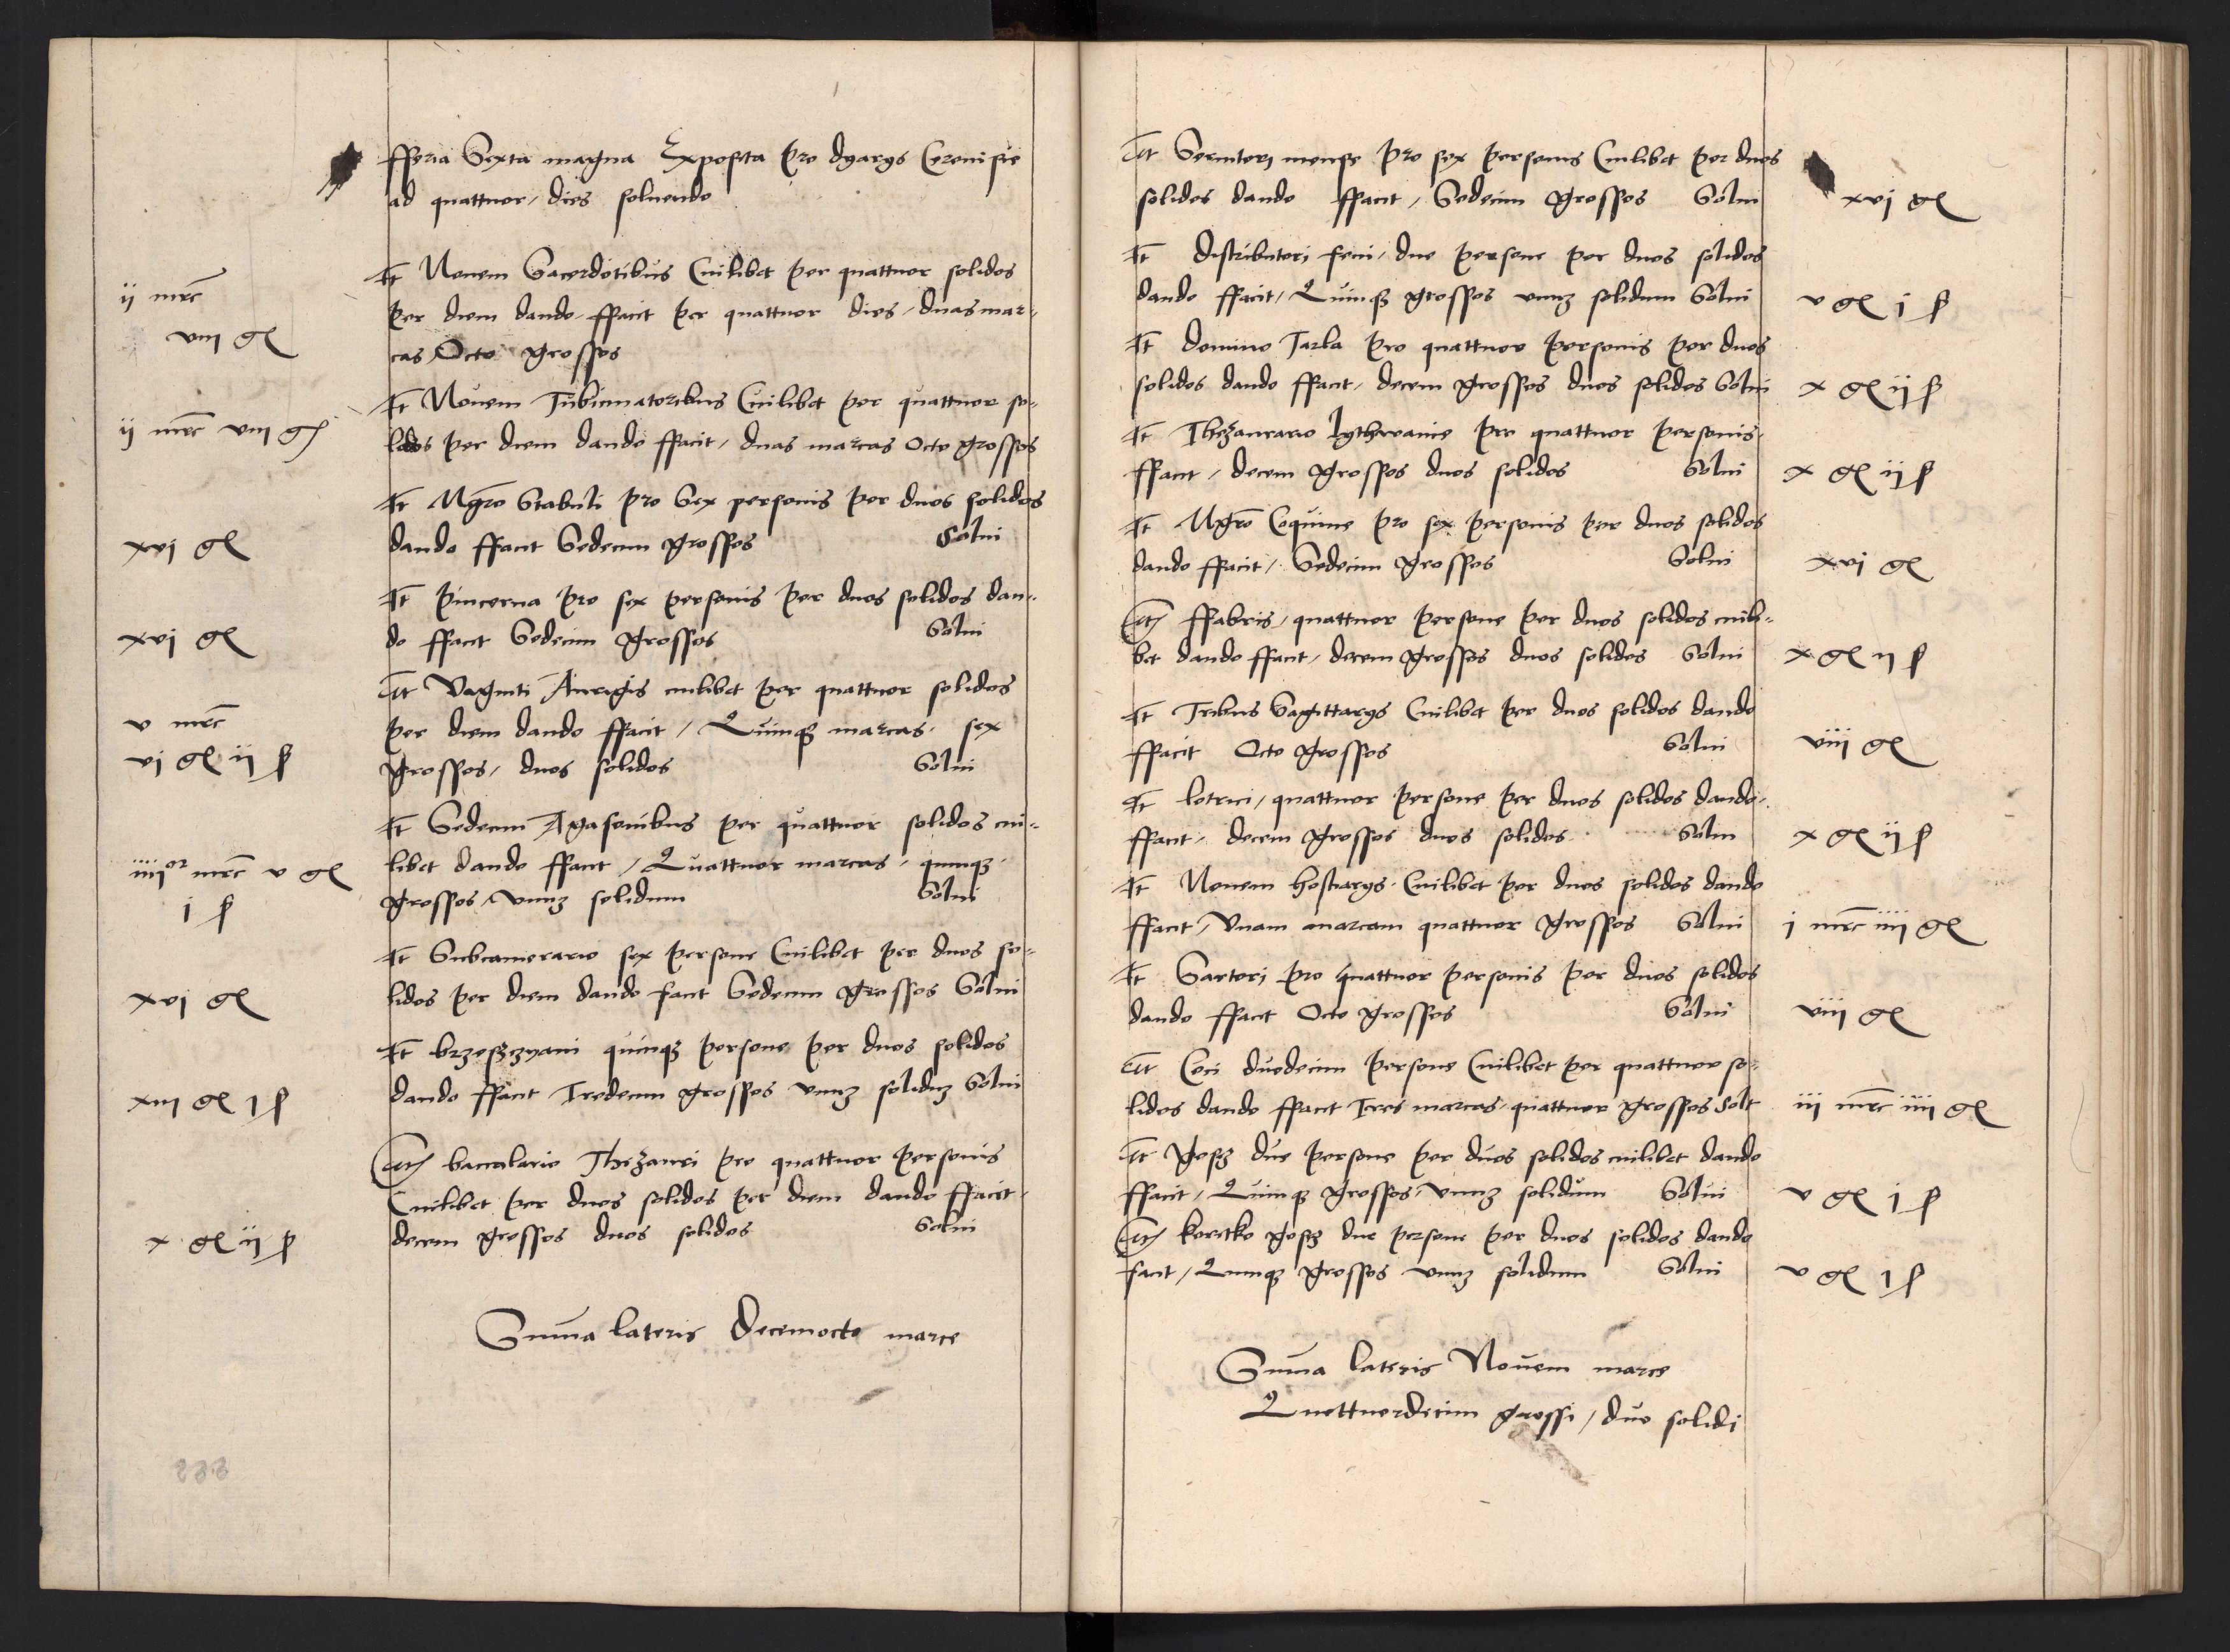 fferia Sexta magna Exposita pro dyarys Cerenisie
ad quattuor / dies soluendo
It Nouem Sacerdotibus Cuilibet per quattuor solidos
ij mrc
per diem dando ffacit per quattuor dies / duas mar-
viij gl
cas Octo grossos
It Nouem Tubicinatoribus Cuilibet per quattuor so-
ij mrc viij gl
lidos per diem dando ffacit / duas marcas Octo grossos
It Mgro Stabuli pro Sex personis per duos solidos
xvj gl
dando ffacit Sedecim grossos Solui
It pincerna pro sex personis per duos solidos dan-
xvj gl
do ffacit Sedecim grossos Solui
It Vaginti Aurigis cuilibet per quattuor solidos
v mrc
per diem dando ffacit / Quinqз marcas sex
vj gl ij ß
grossos / duos solidos Solui
It Sedecim Agasonibus per quattuor solidos cui-
iiijor mrc v gl
libet dando ffacit / Quattuor marcas / quinqз
j ß
grossos / vnuз solidum Solui
It Subcamerario sex persone Cuilibet per duos so-
xvj gl
lidos per diem dando facit Sedecim grossos Solui
It brzeszczyani quinqз persone per duos solidos
xiij gl j ß
dando ffacit Tredecim grossos vnuз soliduз Solui
It baccalario Thezauri pro quattuor personis
Cuilibet per duos solidos per diem dando ffacit
x gl ij ß
decem grossos duos solidos Solui
Suma lateris Decemocto marce
233
It Seruitori mense pro sex personis Cuilibet per duos
solidos dando ffacit / Sedecim grossos Solui
xvj gl
It distributori feni / due persone per duos solidos
dando ffacit / Quinqз grossos vnuз solidum Solui
v gl j ß
It domino Tarla pro quattuor personis per duos
solidos dando ffacit / decem grossos duos solidos Solui
x gl ij ß
It Thezaurario lythwanie pro quattuor personis
ffacit / decem grossos duos solidos Solui
x gl ij ß
It Mgro Coquine pro sex personis per duos solidos
dando ffacit / Sedecim grossos Solui
xvj gl
It ffabris / quattuor persone per duos solidos cuili-
bet dando ffacit / decem grossos duos solidos Solui
x gl ij ß
It Tribus Sagittarys Cuilibet per duos solidos dando
ffacit Octo grossos Solui
viij gl
It lotrici / quattuor persone per duos solidos dando
ffacit / decem grossos duos solidos Solui
x gl ij ß
It Nouem hostiarys Cuilibet per duos solidos dando
ffacit / Vnam marcam quattuor grossos Solui
j mrc iiij gl
It Sartori pro quattuor personis per duos solidos
dando ffacit Octo grossos Solui
viij gl
It Coci duodecim persone Cuilibet per quattuor so-
lidos dando ffacit Tres marcas quattuor grossos Solt
iij mrc iiij gl
It gosz due persone per duos solidos cuilibet dando
ffacit / Quinqз grossos / vnuз solidum Solui
v gl j ß
It koretko gosz due persone per duos solidos dando
facit / Quinqз grossos vnuз solidum Solui
v gl j ß
Suma lateris Nouem marce
Quottuordecim grossi / duo solidi